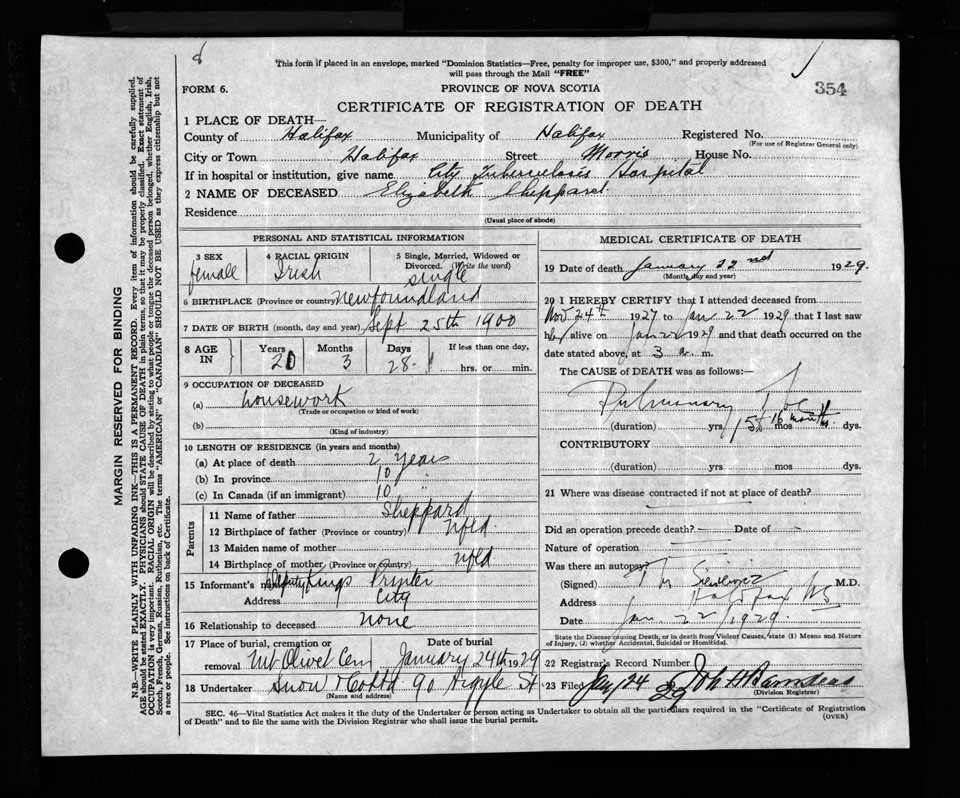 This form if placed in an envelope, marked "Dominion Statistics—Free, penalty for improper use, $300," and properly addressed
will pass through the Mail "FREE"
354
FORM 6.
PROVINCE OF NOVA SCOTIA
CERTIFICATE OF REGISTRATION OF DEATH
1 PLACE OF DEATH—
County of Halifax Municipality of Halifax Registered No.
(For use of Registrar General only)
City or Town Halifax Street Morris House No.
If in hospital or institution, give name City Tuberculosis Hospital
2 NAME OF DECEASED Elizabeth Sheppard
Residence
(Usual place of abode)
PERSONAL AND STATISTICAL INFORMATION
3 SEX 4 RACIAL ORIGIN 5 Single, Married, Widowed or
Divorced. (Write the word)
female Irish single
6 BIRTHPLACE (Province or country) Newfoundland
7 DATE OF BIRTH (month, day and year) Sept 25th 1900
8 AGE IN Years Months Days If less than one day,
3 28 hrs. or min.
9 OCCUPATION OF DECEASED
(a) housework
(Trade or occupation or kind of work)
(b)
(Kind of industry)
10 LENGTH OF RESIDENCE (in years and months)
(a) At place of death 2 Years
(b) In province 10 "
(c) In Canada (if an immigrant) 10 "
Parents
11 Name of father Sheppard
12 Birthplace of father (Province or country) Nfld.
13 Maiden name of mother
14 Birthplace of mother (Province or country) Nfld
15 Informant's name Deputy Kings Printer
Address City
16 Relationship to deceased None
17 Place of burial, cremation or Date of burial
removal Mt Olivet Cem January 24th 1929
18 Undertaker Snow & Co Ltd 90 Argyle St
(Name and address)
MEDICAL CERTIFICATE OF DEATH
19 Date of death January 22nd 1929.
(Month, day and year)
20 I HEREBY CERTIFY that I attended deceased from
Nov 24th 1927 to Jan 22 1929 that I last saw
her alive on Jan 22 1929 and that death occurred on the
date stated above, at 3 a. m.
The CAUSE of DEATH was as follows:—
Pulmonary Tbc
(duration) yrs. 16 months mos. dys.
CONTRIBUTORY
(duration) yrs. mos. dys.
21 Where was disease contracted if not at place of death?
Did an operation precede death? – Date of –
Nature of operation
Was there an autopsy?
(Signed) M.D.
Address Halifax NS
Date Jan. 22/1929.
State the Disease causing Death, or in death from Violent Causes, state (1) Means and Nature
of Injury, (2) whether Accidental, Suicidal or Homicidal.
22 Registrar's Record Number
23 Filed Jan/24 29
(Division Registrar)
SEC. 46—Vital Statistics Act makes it the duty of the Undertaker or person acting as Undertaker to obtain all the particulars required in the "Certificate of Registration
of Death" and to file the same with the Division Registrar who shall issue the burial permit. (OVER)
MARGIN RESERVED FOR BINDING
N.B.—WRITE PLAINLY WITH UNFADING INK—THIS IS A PERMANENT RECORD. Every item of information should be carefully supplied.
AGE should be stated EXACTLY. PHYSICIANS should STATE CAUSE OF DEATH in plain terms, so that it may be properly classified. Exact statement of
OCCUPATION is very important. RACIAL ORIGIN will be described by stating to what people or tongue the deceased person belonged, whether English, Irish,
Scotch, French, German, Russian, Ruthenian, etc. The terms "AMERICAN" or "CANADIAN" SHOULD NOT BE USED as they express citizenship but not
a race or people. See instructions on back of Certificate.